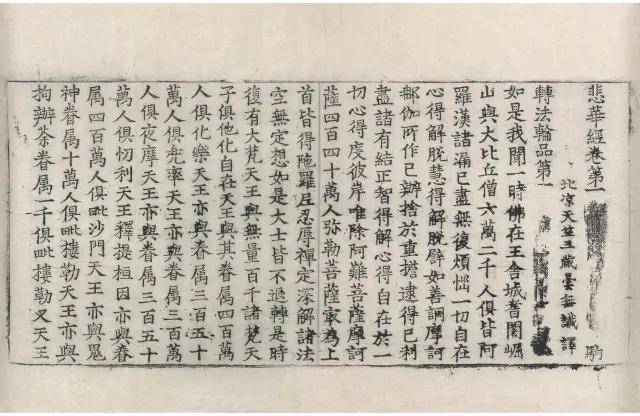 悲華經卷第一 駒
北凉天竺三藏曇無讖譯
轉法輪品第一
如是我聞一時佛在王舍城耆闍崛
山與大比丘僧六萬二千人俱皆阿
羅漢諸漏已盡無復煩惱一切自在
心得解脫慧得解脫譬如善調摩訶
那伽所作已辦捨於重擔逮得已利
盡諸有結正智得解心得自在於一
切心得度彼岸唯除阿難菩薩摩訶
薩四百四十萬人弥勒菩薩冣為上
首皆得陁羅尼忍辱禪定深解諸法
空無定想如是大士皆不退轉是時
復有大梵天王與無量百千諸梵天
子俱他化自在天王與其眷属四百萬
人俱化樂天王亦與眷属三百五十
萬人俱兜率天王亦與眷属三百萬
人俱夜摩天王亦與眷属三百五十
萬人俱忉利天王釋提桓因亦與眷
属四百萬人俱毗沙門天王亦與鬼
神眷属十萬人俱毗樓勒天王亦與
拘辦荼眷属一千俱毗樓勒叉天王